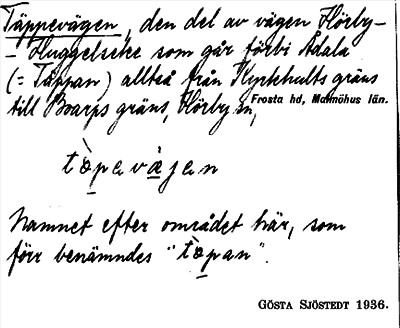 Täppevägen, den del av vägen Hörby-
- Huggelseke som går förbi Ådala
(= Täppan) alltså från Klyckhults gräns
till Boarps gräns, Hörby sn,
Frosta hd, Malmöhus län.
tò̱pavæ̱jan
Namnet efter området här, som
förr benämndes "tò̱pan".
GÖSTA SJÖSTEDT 1936.